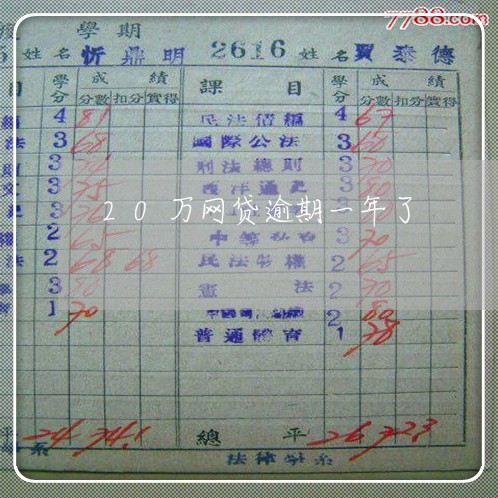 7788.com
學期
姓名 忻鼎明 2616 姓名 賈泰德
目 學分 成績 課目 學分 成績
分數 扣分 實得 分數 扣分 實得
4 81 民法債編 4 67
法 3 68 國際公法 3 60
3 刑法總則 3 70
3 75 西洋通史 3 80
3
20万网贷逾期一年了
2 65 3 70
法 2 68 68 民法物權 2 65
3 80 憲法 2 70
1 70 2 80
普通體育 1 78
平 24 74.1 總平 26 72.3
系 法律學系